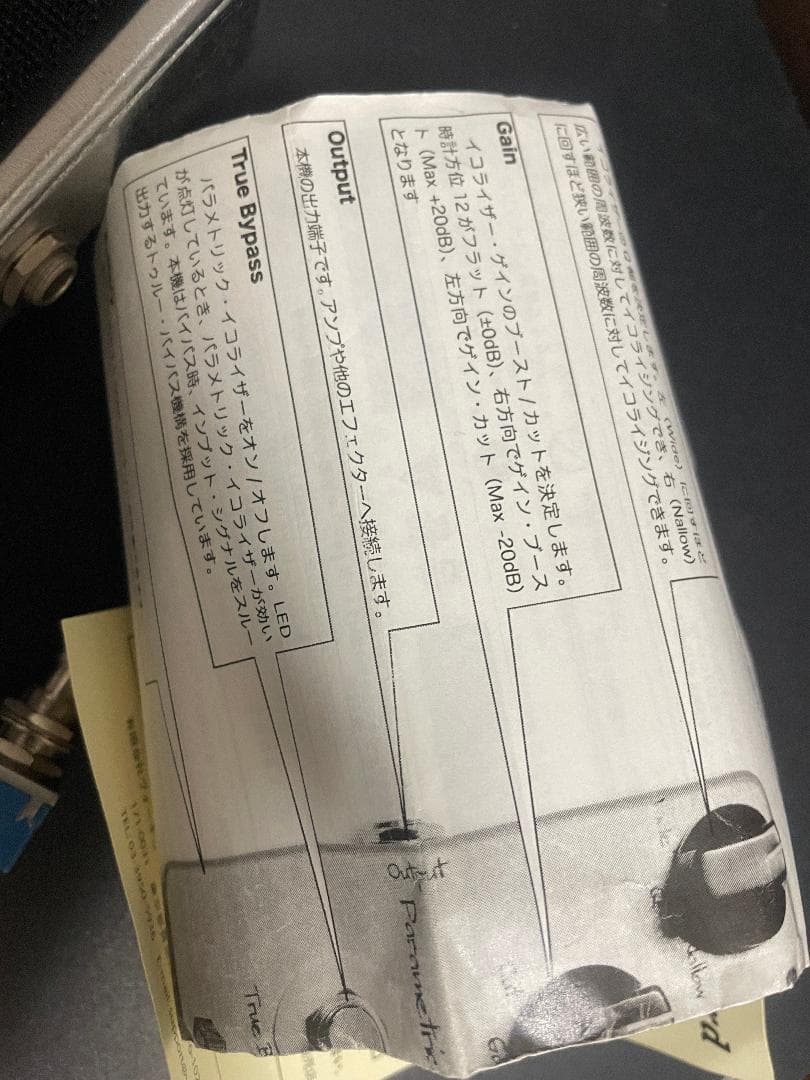 (Wide) に回すほど
広い範囲の周波数に対してイコライジングでき、右 (Nallow)
に回すほど狭い範囲の周波数に対してイコライジングできます。
Gain
イコライザー・ゲインのブースト/カットを決定します。
時計方位 12 がフラット (±0dB)、右方向でゲイン・ブース
ト (Max +20dB)、左方向でゲイン・カット (Max -20dB)
となります
Output
本機の出力端子です。アンプや他のエフェクターへ接続します。
True Bypass
パラメトリック・イコライザーをオン/オフします。LED
が点灯しているとき、パラメトリック・イコライザーが効い
ています。本機はバイパス時、インプット・シグナルをスルー
出力するトゥルー・バイパス機構を採用しています。
allow
Parametric
True B
rd